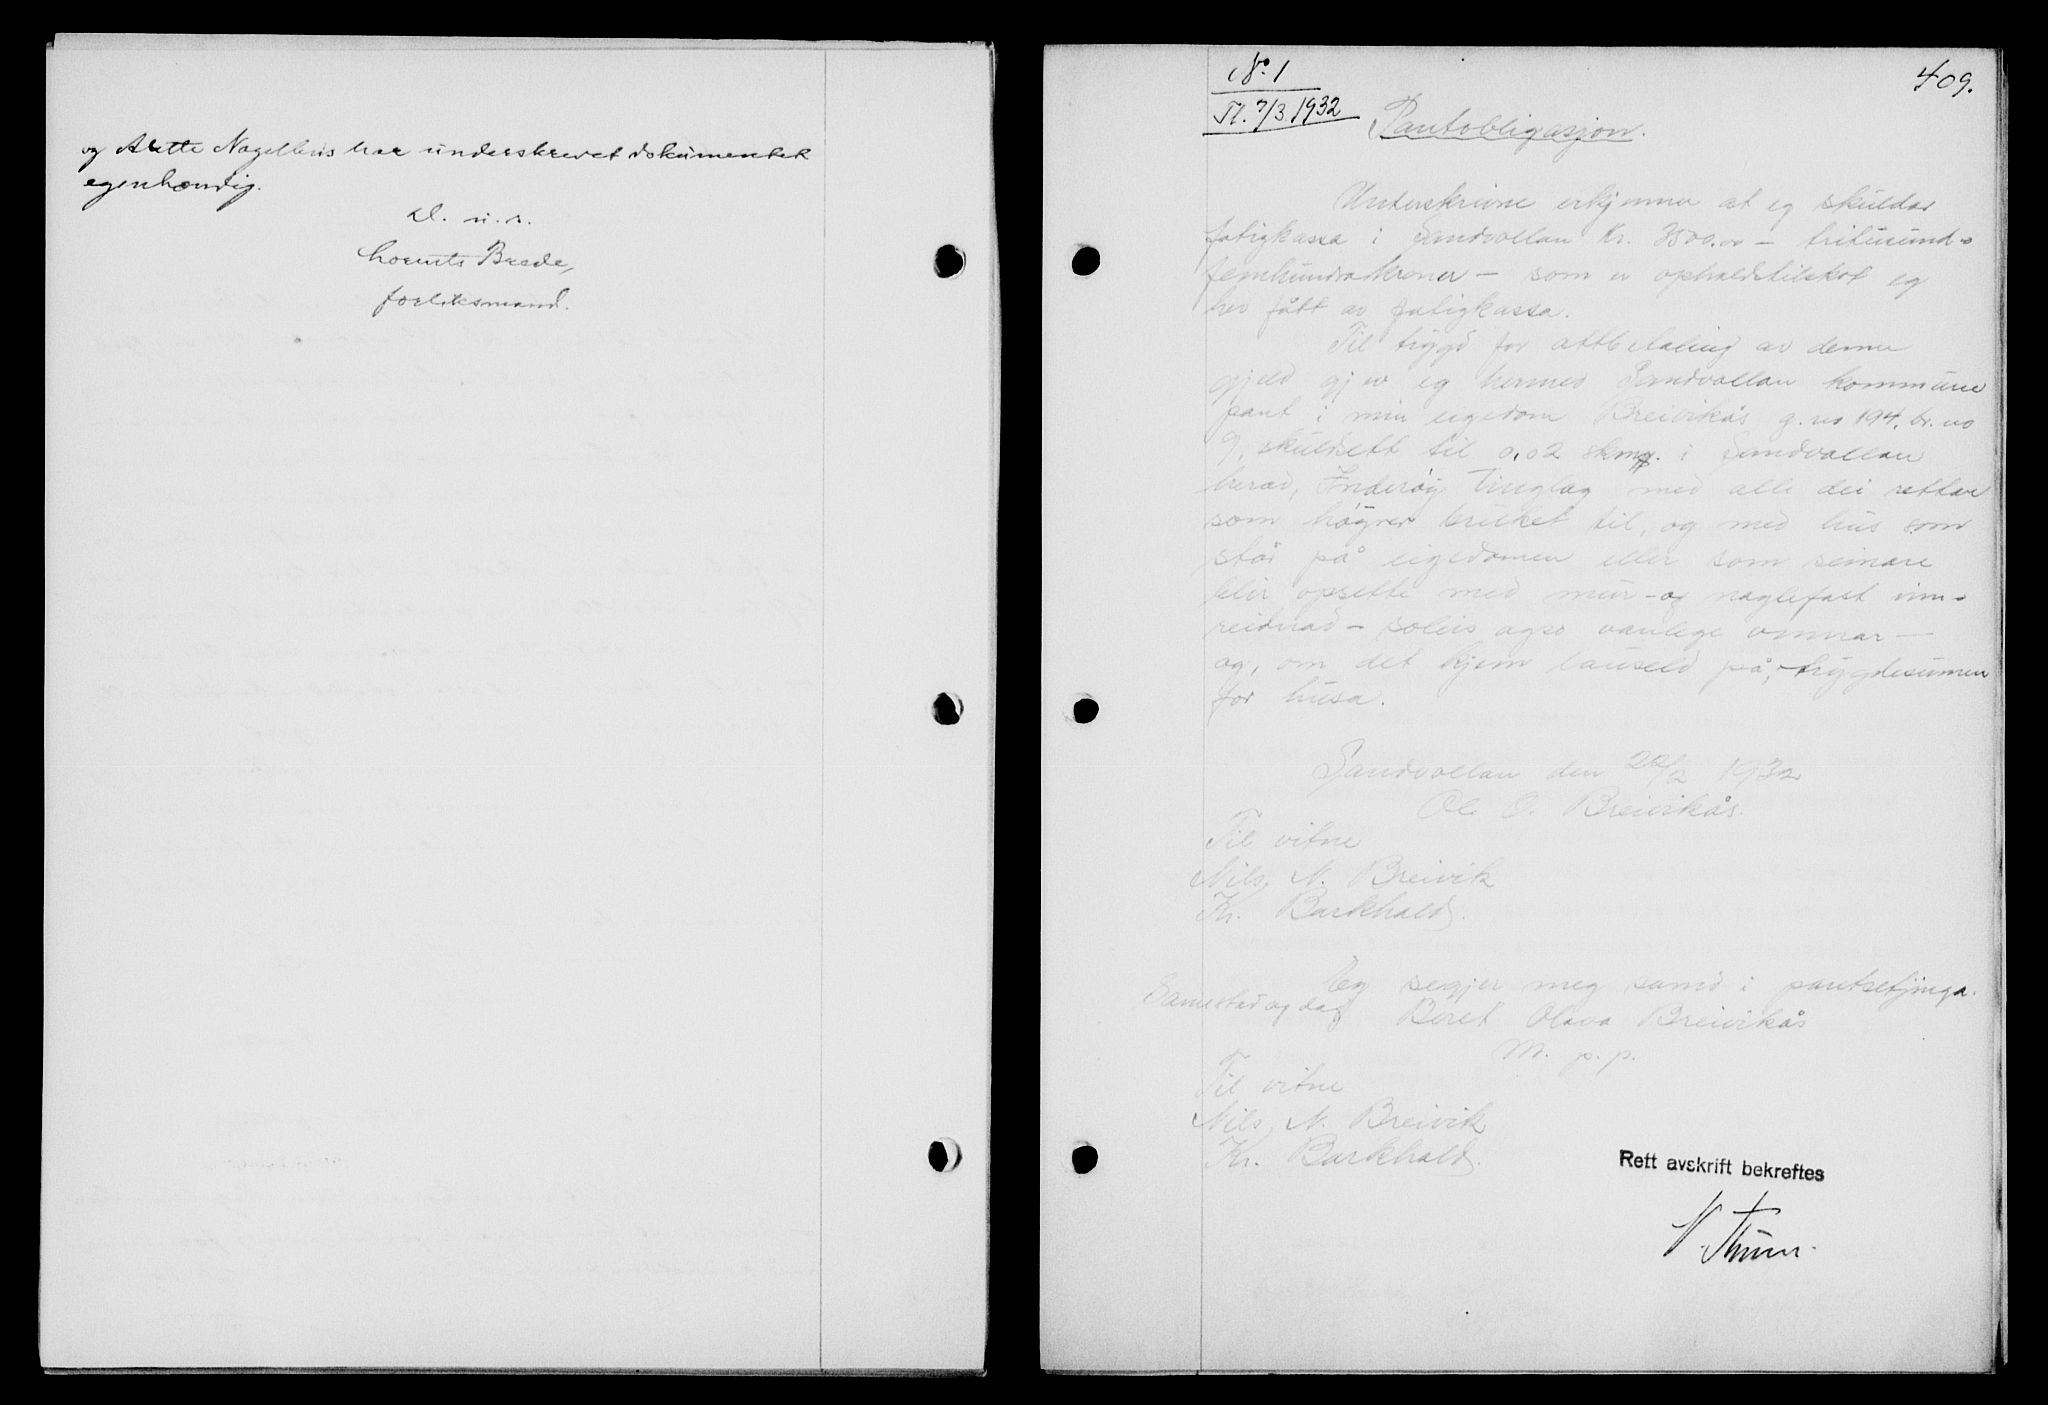 og Anette Nagelhus har underskrevet dokumentet
egenhændig.
D. u. s.
Lorents Brede,
forliksmand.
No. 1
Tl. 7/3. 1932
409.
Pantobligasjon.
Underskrivne erkjenner at eg skuldar
fatigkassa i Sandvollan Kr. 3500.00 - tritusund-
femhundrakroner - som er opholdstilskot eg
hev fått av fatigkassa.
Til trygd for attbetaling av denne
gjeld gjev eg hermed Sandvollan kommune
pant i min eigedom Breivikås g.no 194, br.no
9, skuldsett til 0,02 skmrk. i Sandvollan
herad, Inderøy Tinglag med alle dei rettar
som høyrer bruket til, og med hus som
står på eigedomen eller som seinare
blir opsette med mur- og naglefast inn-
reidnad - soleis også vanlege omnar -
og, om det kjem lauseld på, trygdesumen
for husa.
Sandvollan den 22/2 1932
Ole O. Breivikås.
Til vitne
Nils N. Breivik
Kr. Barkhald.
Eg segjer meg samd i pantsetjinga.
Samestad og dag
Beret Olava Breivikås
m. p. p.
Til vitne
Nils N. Breivik
Kr. Barkhald.
Rett avskrift bekreftes